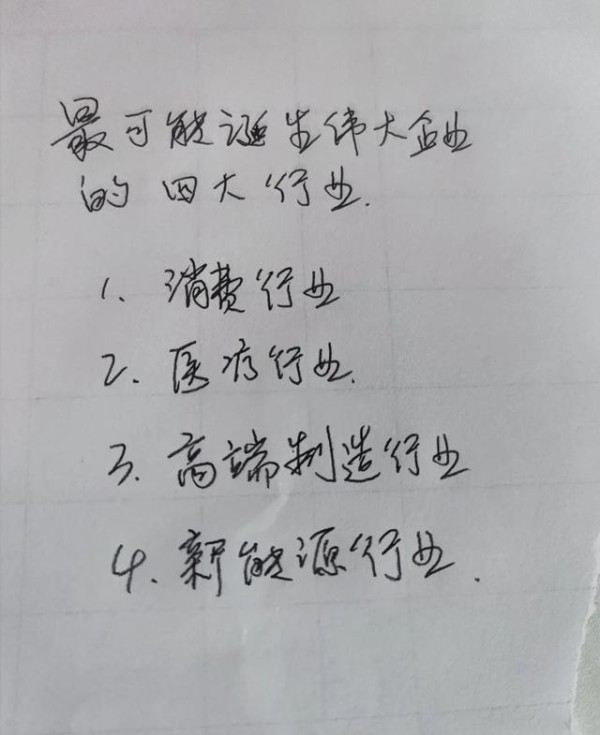 最可能诞生伟大企业
的四大行业.
1. 消费行业
2. 医疗行业.
3. 高端制造行业
4. 新能源行业.